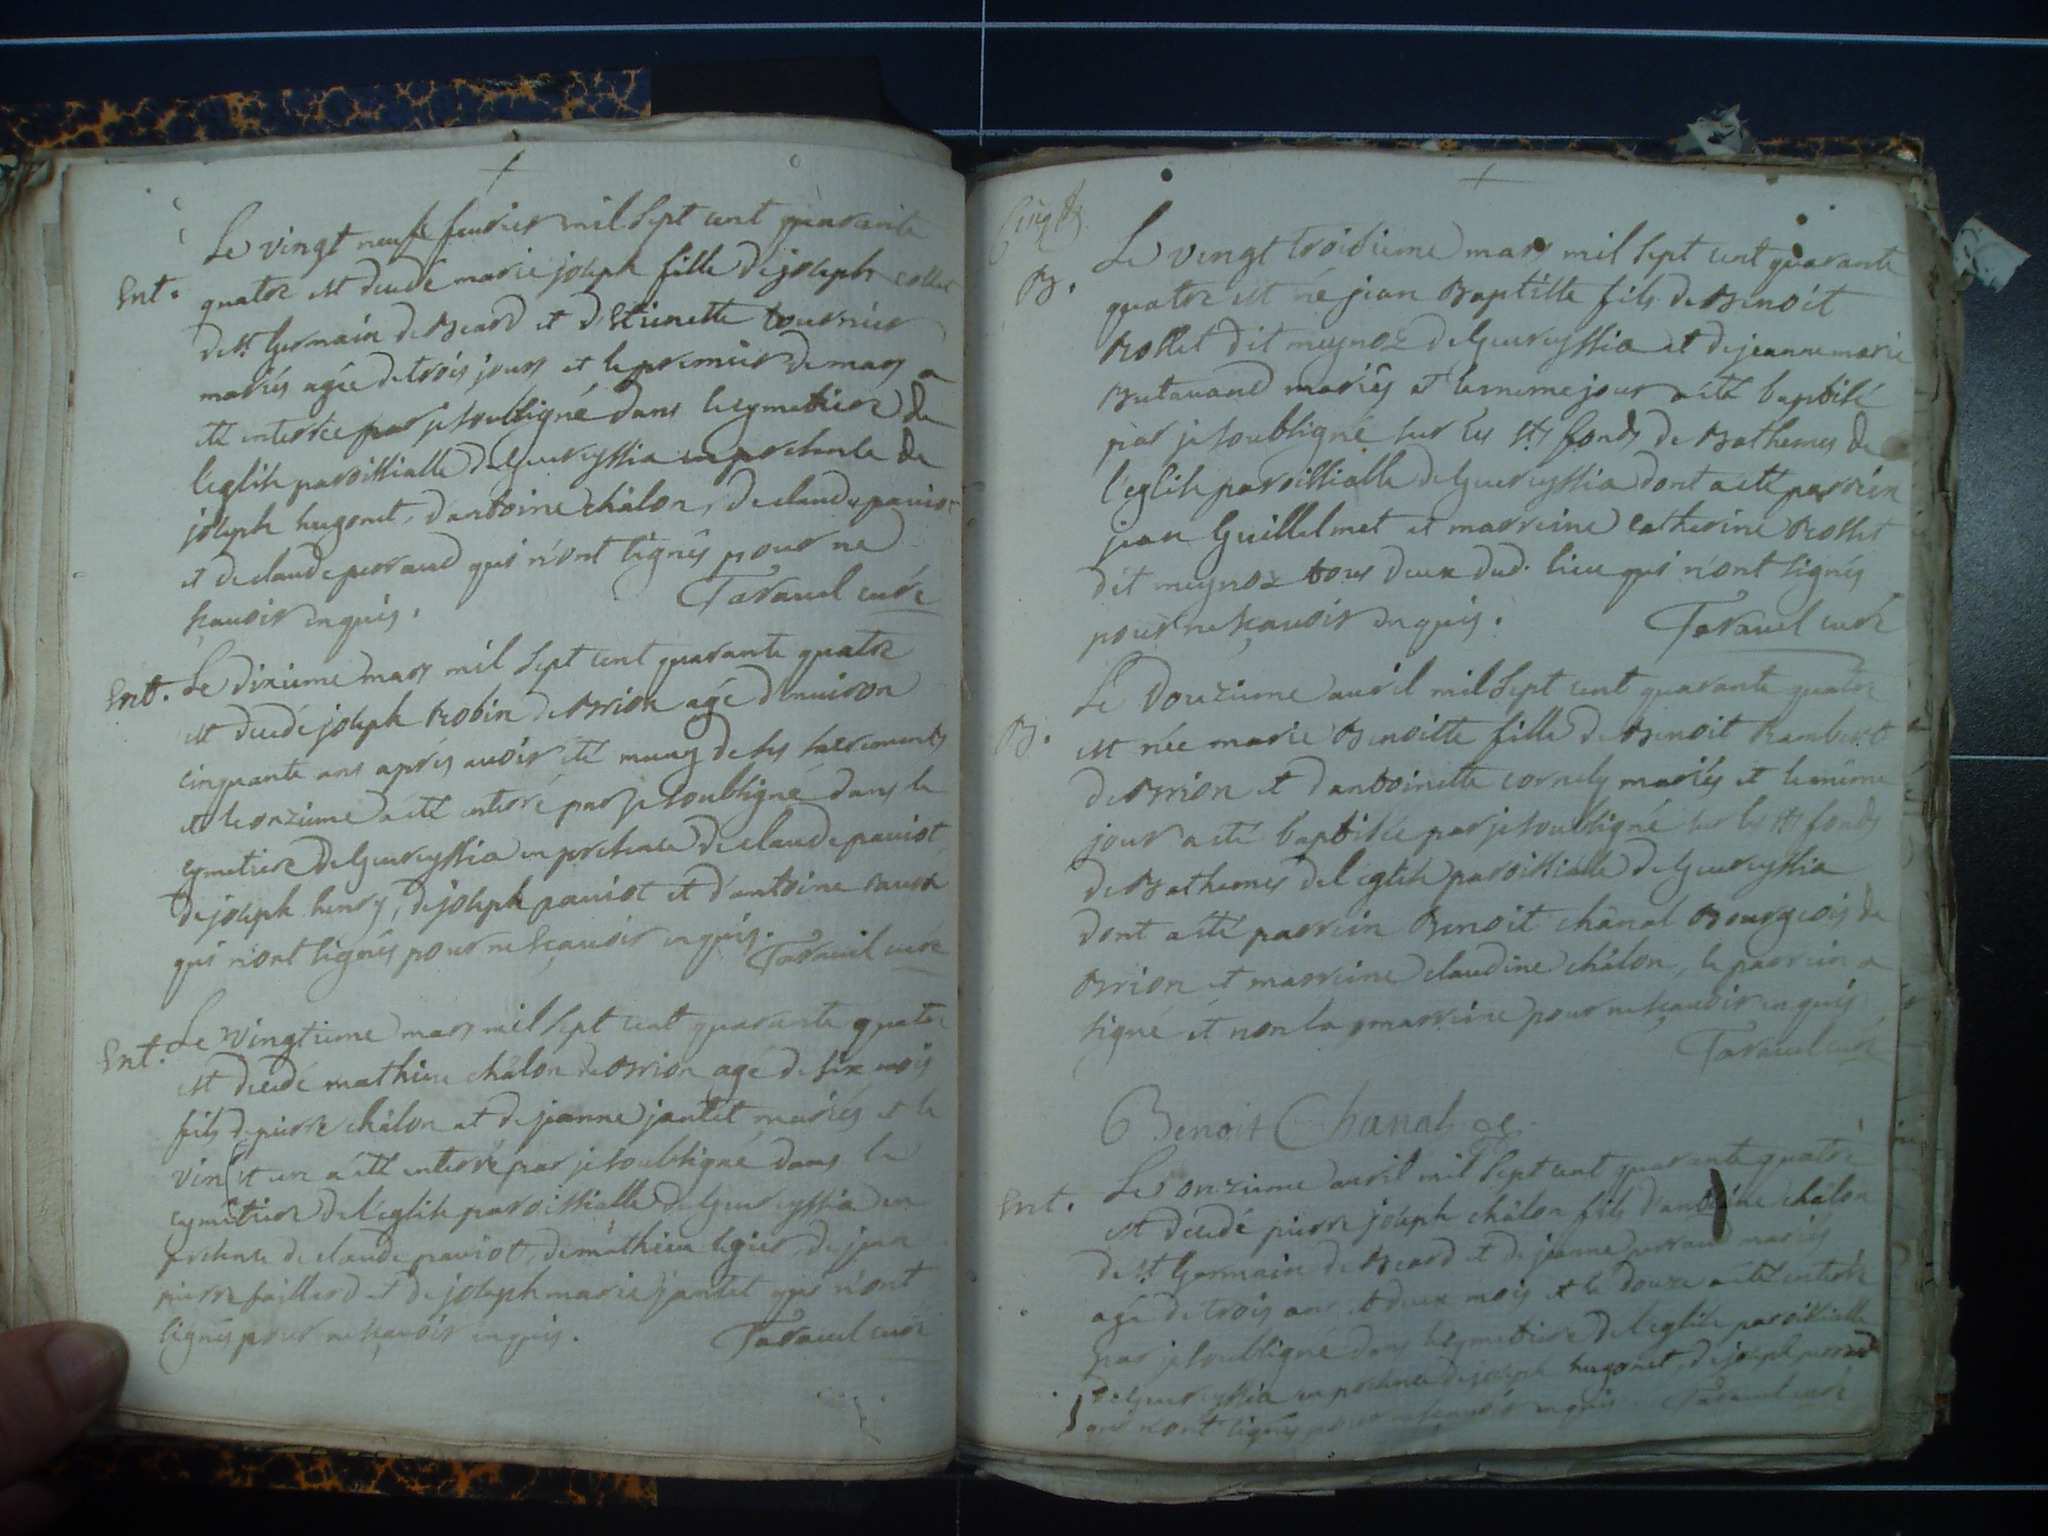 Le vingt neufe feurier mil sept cent quarante
Ent. quatre est decedé marie joseph fille de joseph collet
de st Germain de Beard et d'Etienette tournier
mariés agée de trois jours et le premier de mars a
été enterrée par je soubsigné dans le cymetiere de
l'eglise paroissialle de Geureyssia en presence de
joseph hugonet, d'antoine châlon, de claude pauiot
et de claude perraud qui n'ont signés pour ne
sçauoir enquis. Tarauel curé
Ent. Le dixieme mars mil sept cent quarante quatre
est decedé joseph Robin de Brion agé d'enuiron
cinquante ans aprés auoir été muny de ses sacrements
et le onzieme a été enterré par je soubsigné dans le
cymetiere de Geureyssia en presence de claude pauiot,
de joseph henry, de joseph pauiot et d'antoine
qui n'ont signés pour ne sçauoir enquis. Tarauel curé
Ent. Le vingtieme mars mil sept cent quarante quatre
est decedé mathieu châlon de Brion agé de six mois
fils de pierre châlon et de jeanne jantet mariés et le
vingt et un a été enterré par je soubsigné dans le
cymetiere de l'eglise paroissialle de Geureyssia en
presence de claude pauiot, de mathieu legier, de jean
pierre faillard et de joseph marie jantet qui n'ont
signés pour ne sçauoir enquis. Tarauel curé
Le vingt troisieme mars mil sept cent quarante
B. quatre est né jean Baptiste fils de Benoit
Rollet dit meynoz de Geureyssia et de jeanne marie
Butauand mariés et le meme jour a été baptisé
par je soubsigné sur les sts fonds de Bathemes de
l'eglise paroissialle de Geureyssia dont a été parrein
jean Guillelmet et marreine catherine Rollet
dit meynoz tous deux dud. lieu qui n'ont signés
pour ne sçauoir enquis. Tarauel curé
Le Douzieme auril mil sept cent quarante quatre
B. est née marie Benoitte fille de Benoit Rambert
de Brion et d'antoinette cornely mariés et le même
jour a été baptisée par je soubsigné sur les sts fonds
de Bathemes de l'eglise paroissialle de Geureyssia
dont a été parrein Benoit chânal Bourgeois de
Brion et marreine claudine châlon, le parrein a
signé et non la marreine pour ne sçauoir enquis
Tarauel curé
Benoit Chanal
Le onzieme auril mil sept cent quarante quatre
Ent. est decedé pierre joseph châlon fils d'antoine châlon
de st Germain de Beard et de jeanne perraud mariés
agé de trois ans et deux mois et le douze a été enterré
par je soubsigné dans le cymetiere de l'eglise paroissialle
de Geureyssia en presence de joseph hugonet, de joseph perraud
qui n'ont signés pour ne sçauoir enquis. Tarauel curé